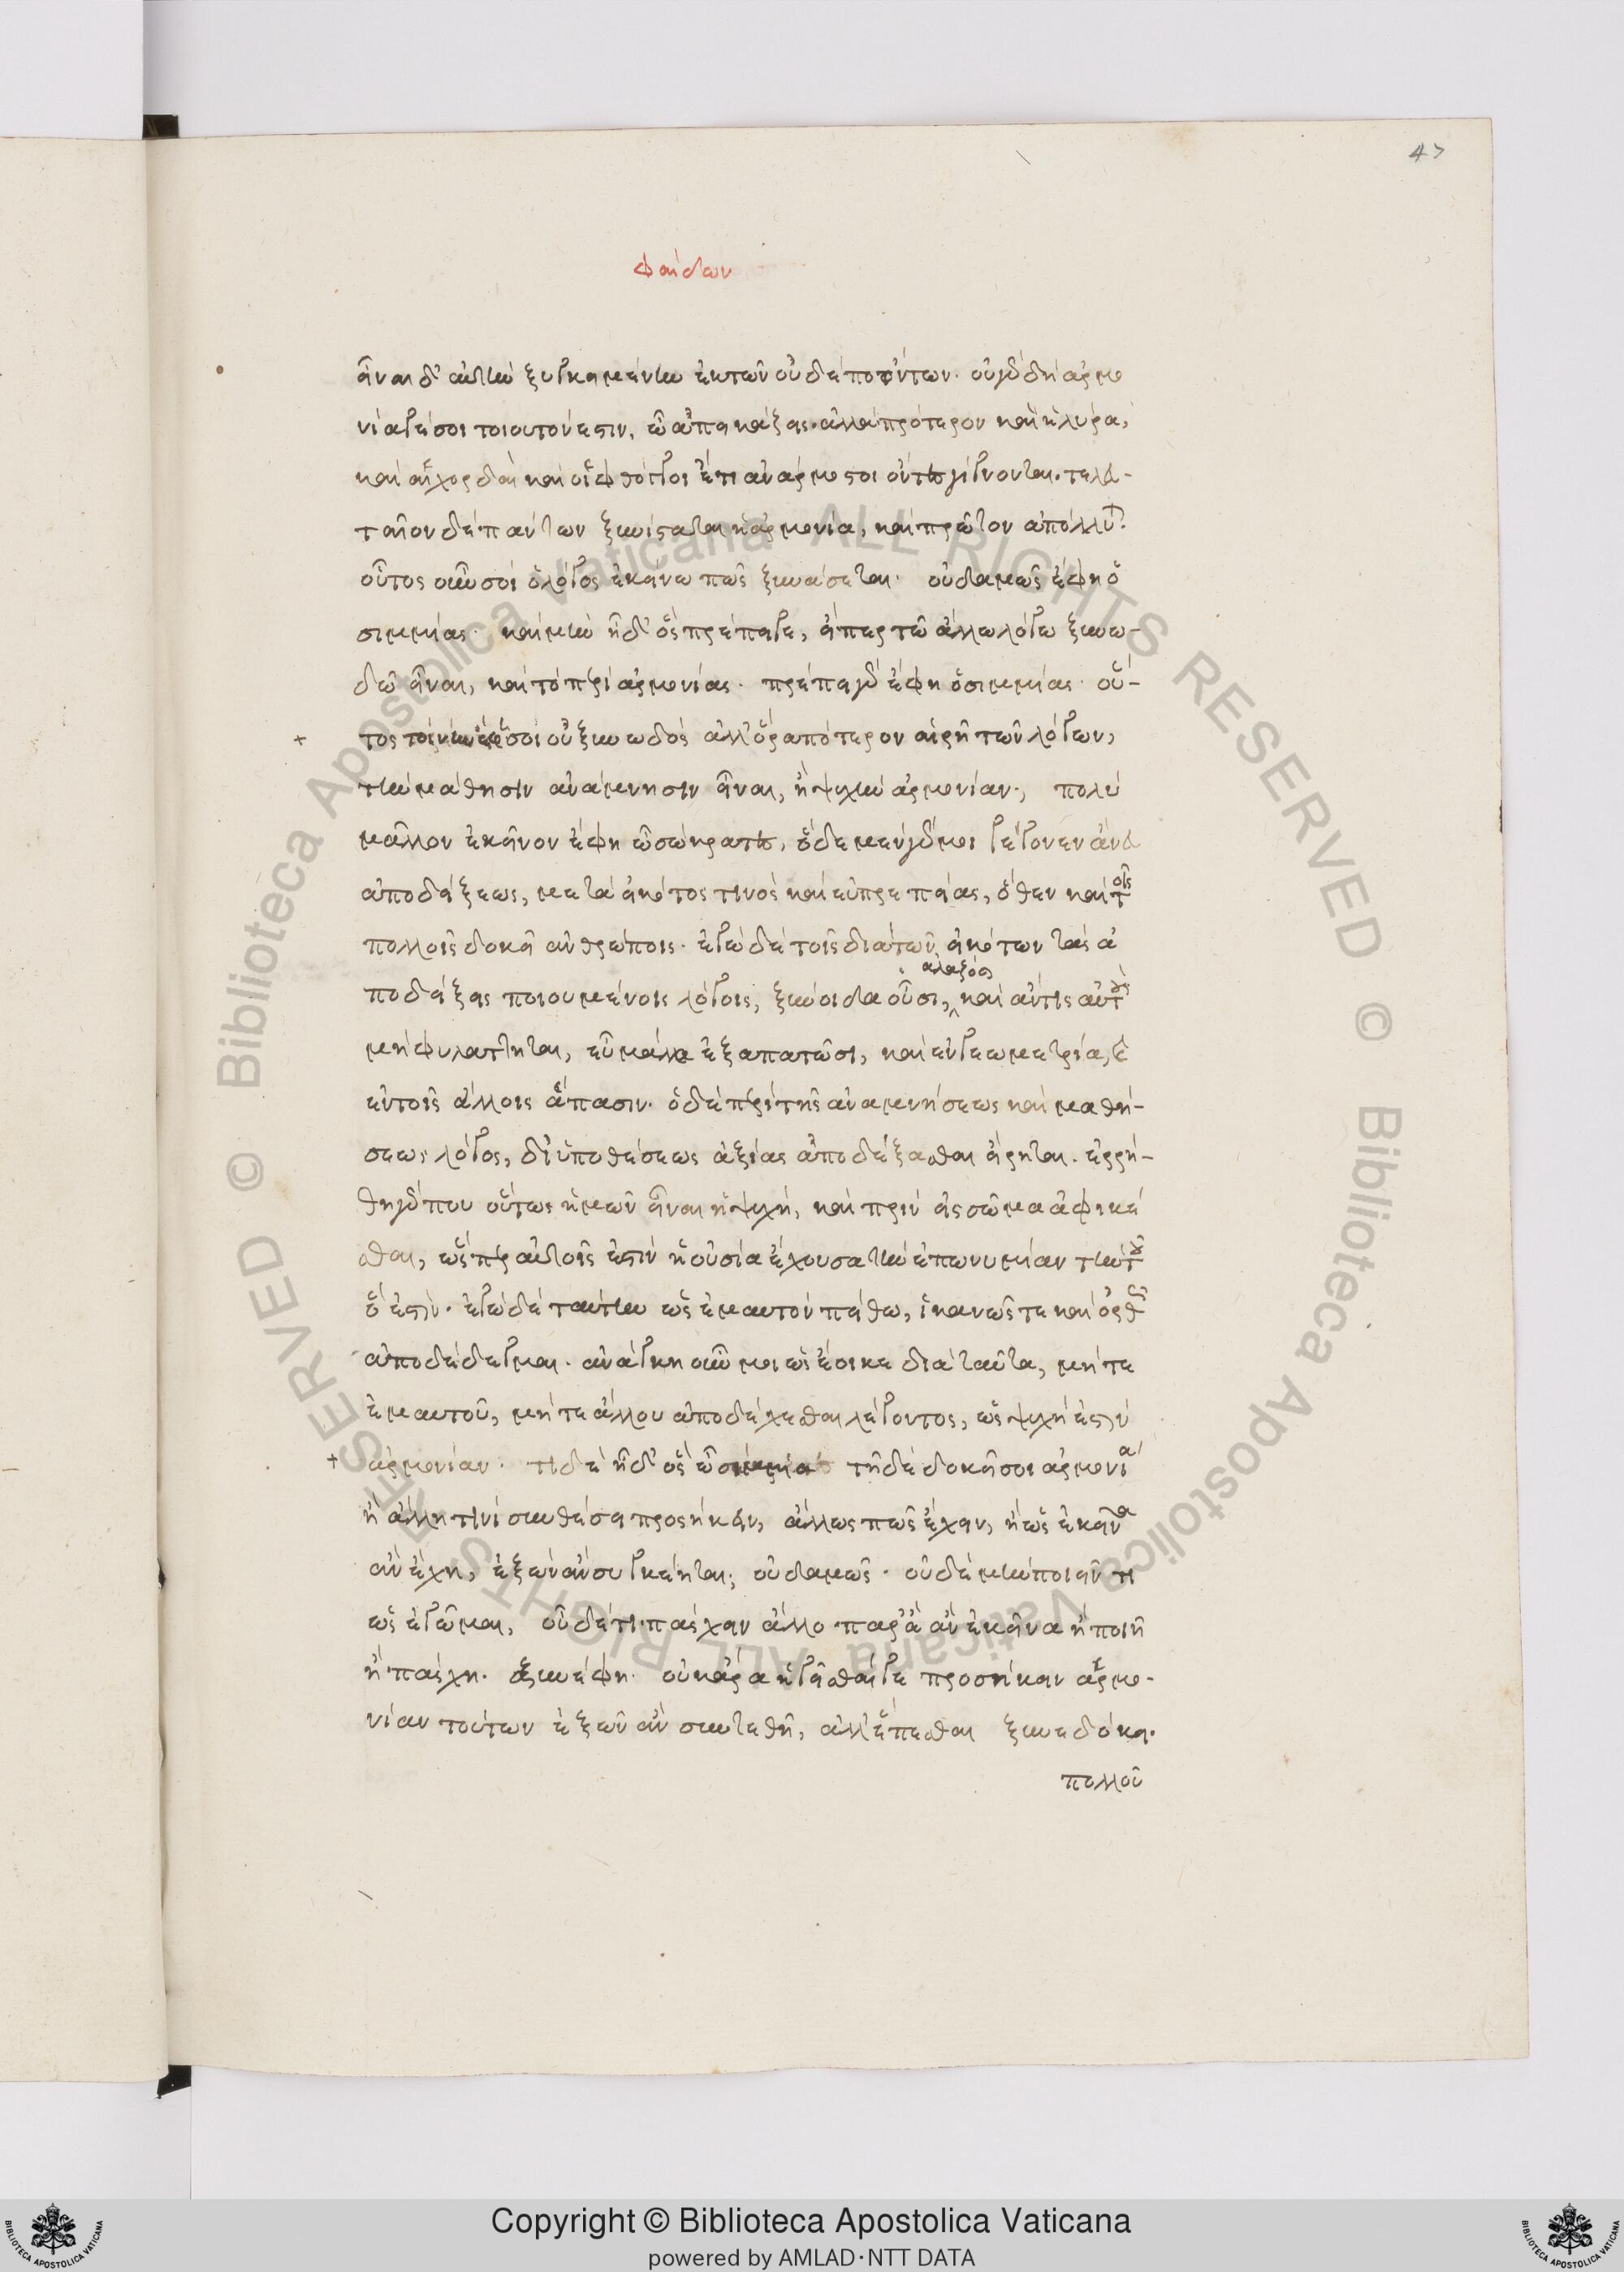 47
φαίδων
εἶναι δ' αὐτὴν ξυγκειμένην ἐκ τῶν οὐδέπω ὄντων. οὐ γὰρ δὴ ἁρμο
νία γέ σοι τοιοῦτόν ἐστιν, ᾧ ἀπεικάζεις. ἀλλὰ πρότερον καὶ ἡ λύρα,
καὶ αἱ χορδαὶ καὶ οἱ φθόγγοι ἔτι ἀνάρμοστοι ὄντες γίγνονται. τελευ-
ταῖον δὲ πάντων ξυνίσταται ἡ ἁρμονία, καὶ πρῶτον ἀπόλλυται.
οὗτος οὖν σοι ὁ λόγος ἐκείνῳ πῶς ξυνᾴσεται. οὐδαμῶς ἔφη ὁ
σιμμίας. καὶ μὴν ἦ δ' ὃς πρέπει γε, εἴπερ τῷ ἄλλῳ λόγῳ ξυνῳ-
δῷ εἶναι, καὶ τῷ περὶ ἁρμονίας. πρέπει γὰρ ἔφη ὁ σιμμίας. οὗ-
τος τοίνυν ἔφη σοι οὐ ξυνῳδός ἀλλ' ὅρα πότερον αἱρῇ τῶν λόγων,
τὴν μάθησιν ἀνάμνησιν εἶναι, ἢ ψυχὴν ἁρμονίαν; πολὺ
μᾶλλον ἐκεῖνον ἔφη ὦ σώκρατες, ὅδε μὲν γάρ μοι γέγονεν ἄνευ
ἀποδείξεως, μετὰ εἰκότος τινὸς καὶ εὐπρεπείας, ὅθεν καὶ τοῖς
πολλοῖς δοκεῖ ἀνθρώποις. ἐγὼ δὲ τοῖς διὰ τῶν εἰκότων τὰς ἀ
ποδείξεις ποιουμένοις λόγοις, ξύνοιδα οὖσι, ἀλαζόσι καὶ ἄν τις αὐτοὺς
μὴ φυλάττηται, εὖ μάλα ἐξαπατῶσι, καὶ ἐν γεωμετρίᾳ, καὶ
ἐν τοῖς ἄλλοις ἅπασιν. ὁ δὲ περὶ τῆς ἀναμνήσεως καὶ μαθή-
σεως λόγος, δι' ὑποθέσεως ἀξίας ἀποδέξασθαι εἴρηται. ἐρρή-
θη γάρ που οὕτως ἡμῶν εἶναι ἡ ψυχή, καὶ πρὶν εἰς σῶμα ἀφικέ
σθαι, ὥσπερ αὐτοῖς ἐστὶν ἡ οὐσία ἔχουσα τὴν ἐπωνυμίαν τὴν τοῦ
ὅ ἐστιν. ἐγὼ δὲ ταύτην ὡς ἐμαυτὸν πείθω, ἱκανῶς τε καὶ ὀρθῶς
ἀποδέδεγμαι. ἀνάγκη οὖν μοι ὡς ἔοικε διὰ ταῦτα, μήτε
ἐμαυτοῦ, μήτε ἄλλου ἀποδέχεσθαι λέγοντος, ὡς ψυχή ἐστιν
ἁρμονίαν. τί δὲ ἦ δ' ὃς ὦ σιμμία τῇδε δοκεῖ σοι ἁρμονία
ἢ ἄλλῃ τινὶ συνθέσει προσήκειν, ἄλλως πως ἔχειν, ἢ ὡς ἐκεῖνα
ἂν ἔχῃ, ἐξ ὧν ἂν συγκέηται; οὐδαμῶς. οὐδὲ μὴν ποιεῖν τι
ὡς ἐγᾦμαι, οὐδέ τι πάσχειν ἄλλο παρ' ἃ ἂν ἐκεῖνα ἢ ποιῇ
ἢ πάσχῃ. ξυνέφη. οὐκ ἄρα ἡγεῖσθαί γε προσήκειν ἁρμο-
νίαν τούτων ἐξ ὧν ἂν συντεθῇ, ἀλλ' ἕπεσθαι ξυνεδόκει.
πολλοῦ
Copyright © Biblioteca Apostolica Vaticana
powered by AMLAD·NTT DATA